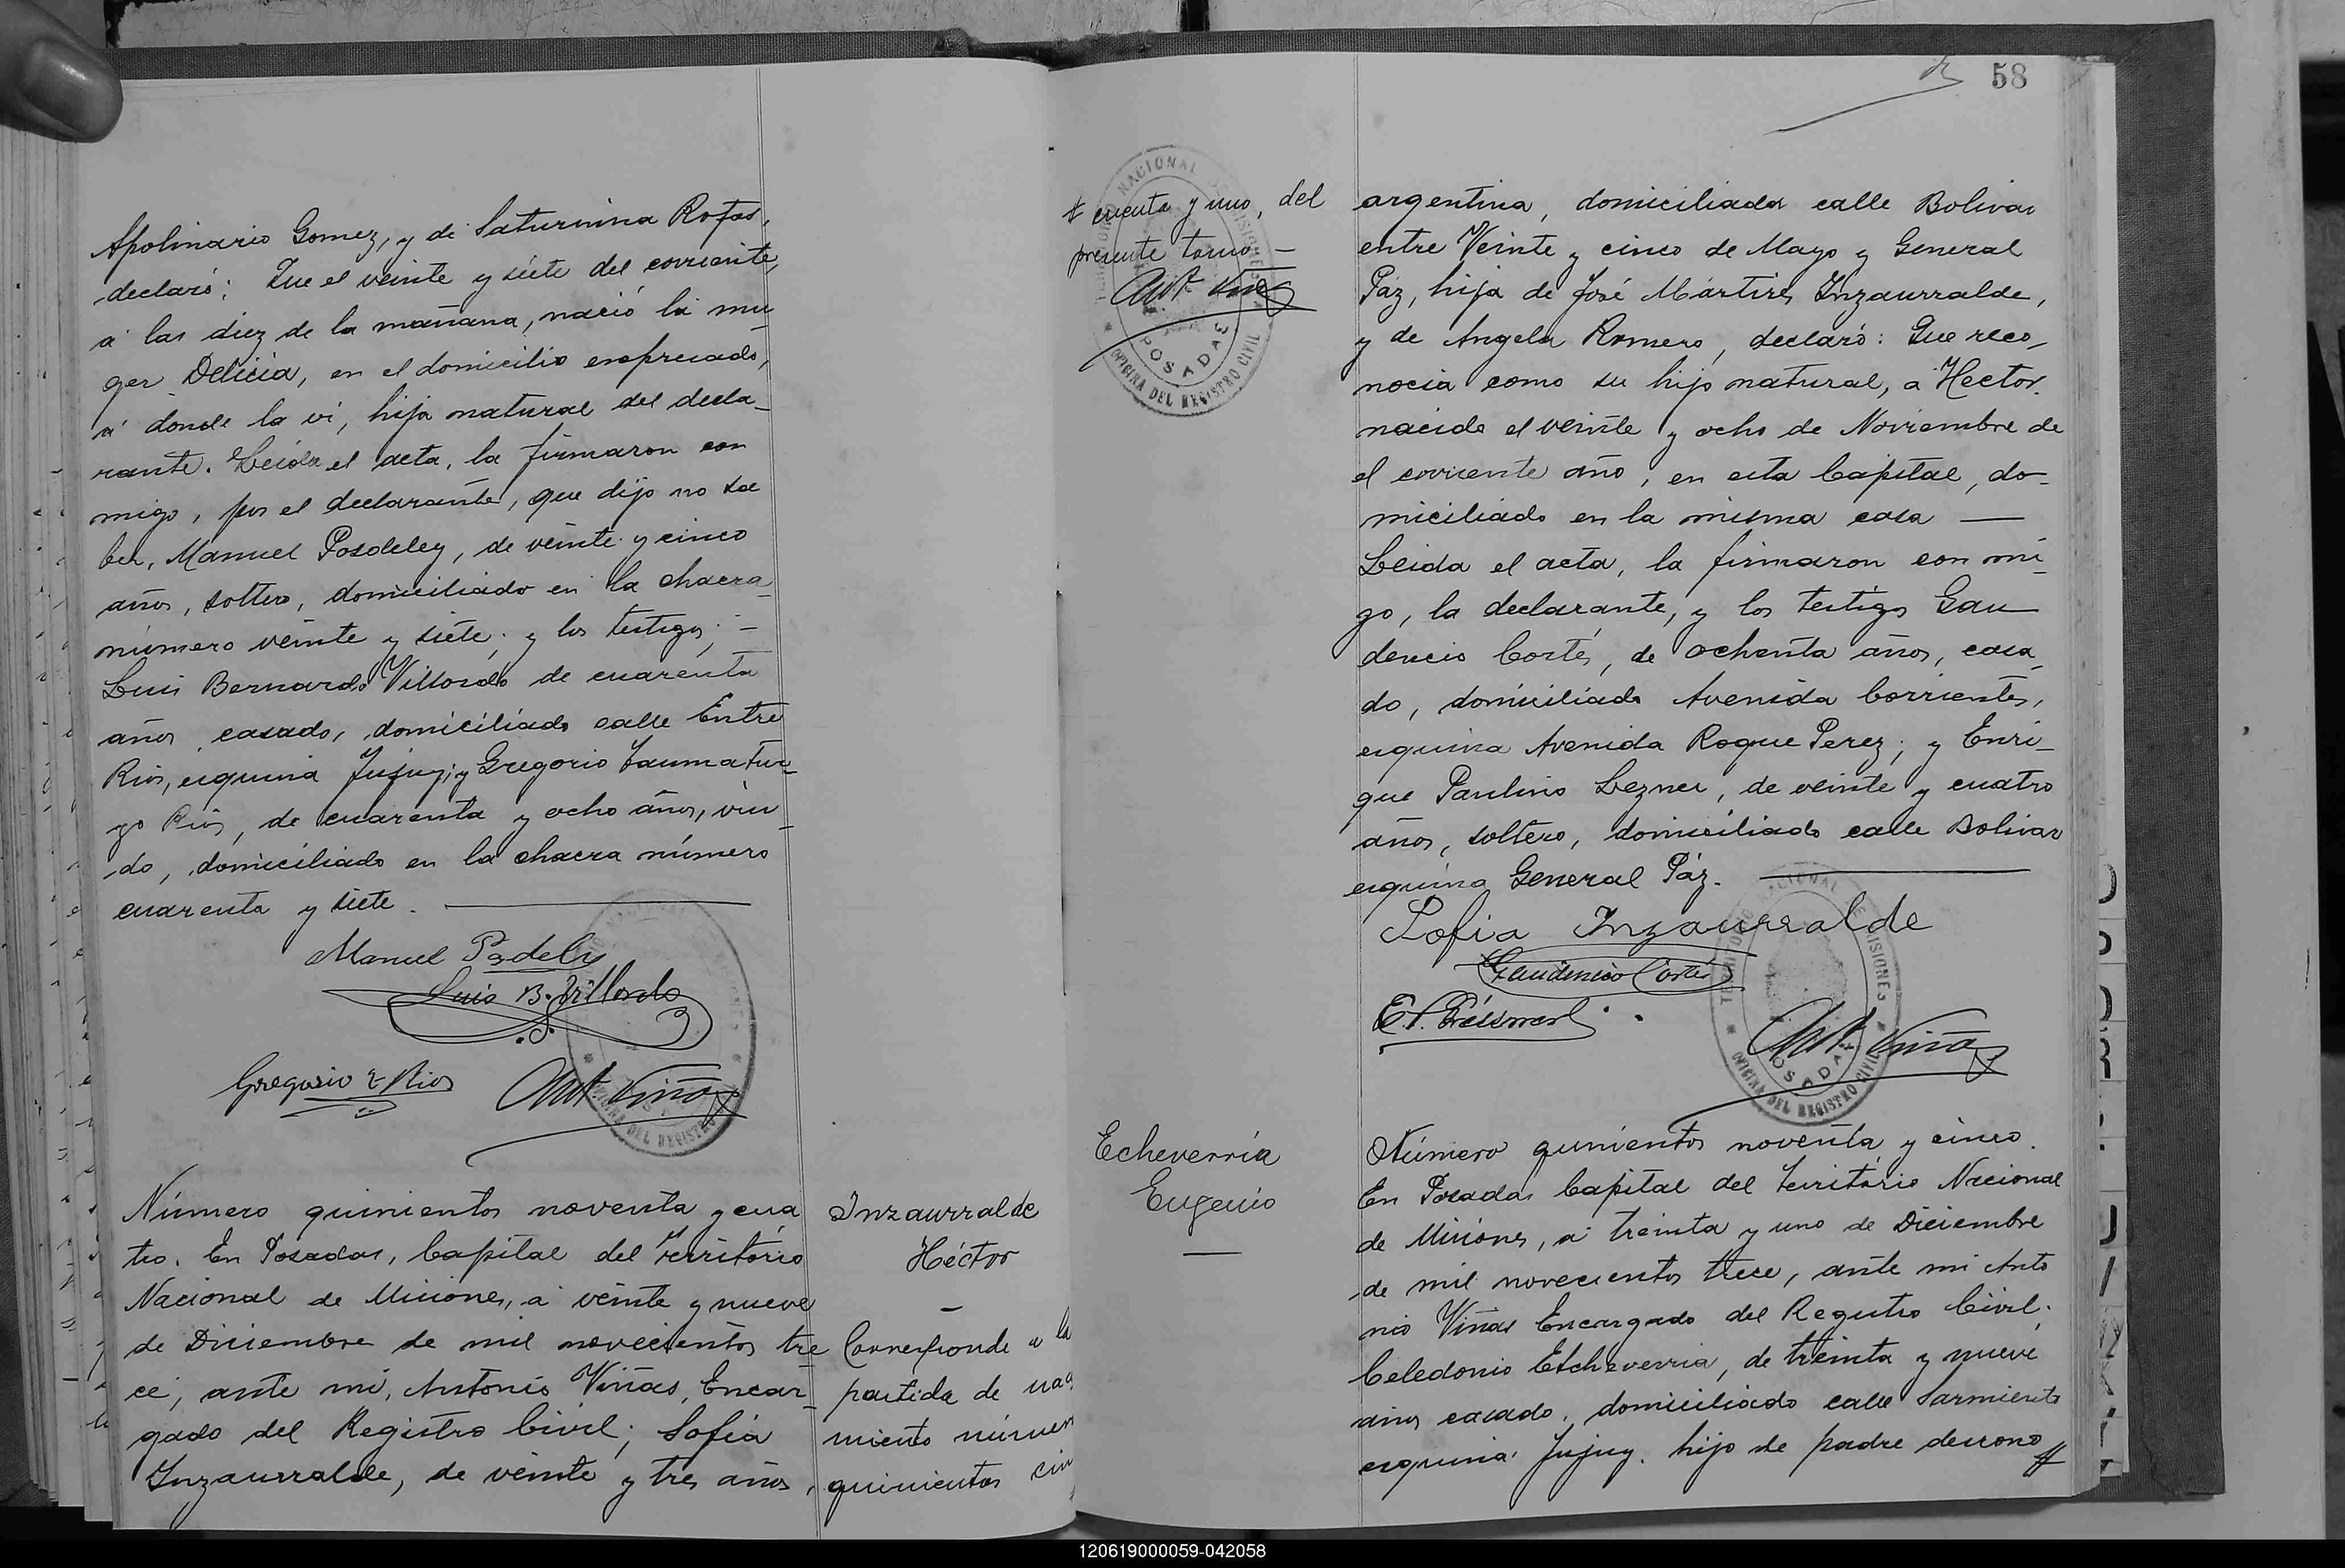 Apolinario Gomez, y de Saturnina Rojas,
declaró: Que el veinte y siete del corriente,
a las diez de la mañana, nació la mu
ger Delicia, en el domicilio enpreciado,
a donde la vi, hija natural del decla-
rante. Leida el acta, la firmaron con
migo, por el declarante, que dijo no sa
ber, Manuel Posdeley, de veinte y cinco
años, soltero, domiciliado en la chacra
número veinte y siete; y los testigos; -
Luis Bernardo Villordo de cuarenta
años, casado, domiciliado calle Entre
Rios, esquina Jujuy; y Gregorio Taumatur-
go Rios, de cuarenta y ocho años, viu-
do, domiciliado en la chacra número
cuarenta y siete.
Manuel
Luis B. Villordo
Gregorio T Rios Ant Viñas
Número quinientos noventa y cua
tro. En Posadas, Capital del Territorio
Nacional de Misiones, a veinte y nueve
de Diciembre de mil novecientos tre
ce, ante mi, Antonio Viñas, Encar-
gado del Registro Civil; Sofia
Inzaurralde, de veinte y tres años,
Inzaurralde
Héctor
-
Corresponde a la
partida de naci
miento número
quinientos cin
58
cuenta y uno, del
presente tomo -
Ant Viñas
TERRITORIO NACIONAL DE MISIONES
POSADAS
OFICINA DEL REGISTRO CIVIL
argentina, domiciliada calle Bolivar
entre Veinte y cinco de Mayo y General
Paz, hija de José Mártires Inzaurralde,
y de Angela Romero, declaró: Que reco-
nocia como su hijo natural, a Hector.
nacido el veinte y ocho de Noviembre de
el corriente año, en esta Capital, do-
miciliado en la misma casa —
Leida el acta, la firmaron con mi-
go, la declarante, y los testigos Gau
dencio Cortés, de ochenta años, casa-
do, domiciliado Avenida Corrientes,
esquina Avenida Roque Perez; y Enri-
que Paulino Lezner, de veinte y cuatro
años, soltero, domiciliado calle Bolivar
esquina General Páz.
Sofia Inzaurralde
Gaudencio Cortés
E. P.
Ant Viñas
TERRITORIO NACIONAL DE MISIONES
POSADAS
OFICINA DEL REGISTRO CIVIL
Echeverría
Eugenio
—
Número quinientos noventa y cinco.
En Posadas Capital del Territorio Nacional
de Misiones, a treinta y uno de Diciembre
de mil novecientos trece, ante mi Anto
nio Viñas Encargado del Registro Civil;
Celedonio Etcheverria, de treinta y nueve
años casado, domiciliado calle Sarmiento
esquina Jujuy. hijo de padre descono
120619000059-042058